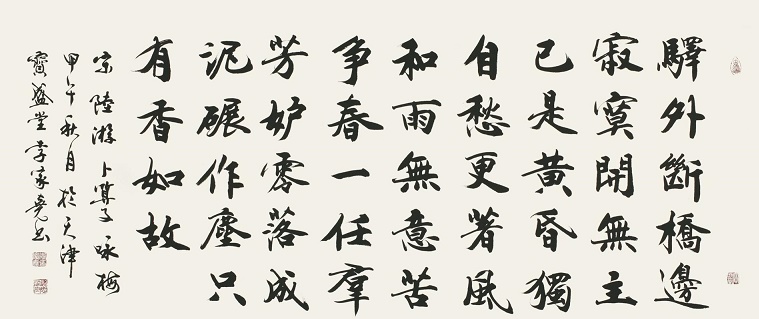 驛外斷橋邊
寂寞開無主
已是黃昏獨
自愁更著風
和雨無意苦
争春一任羣
芳妒零落成
泥碾作塵只
有香如故
宋陸游卜算子咏梅
甲午秋月於天津
盛堂李家堯书